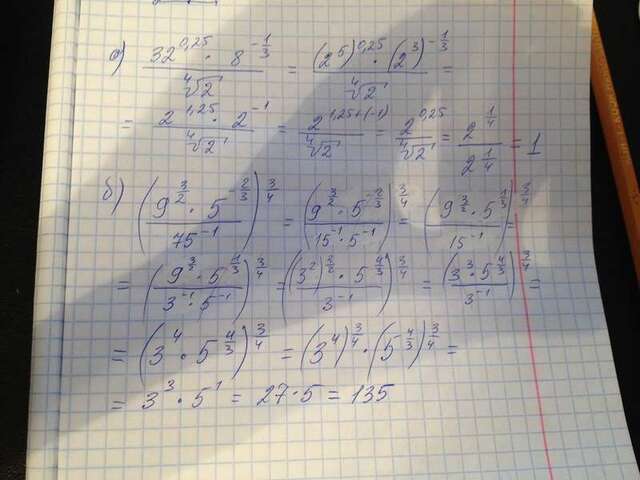 а) (32^0,25 · 8^(-1/3)) / ⁴√2 = ((2^5)^0,25 · (2^3)^(-1/3)) / ⁴√2 =
= (2^1,25 · 2^-1) / ⁴√2 = 2^(1,25+(-1)) / ⁴√2 = 2^0,25 / ⁴√2 = 2^(1/4) / 2^(1/4) = 1
б) ((9^(3/2) · 5^(-2/3)) / 75^-1)^(3/4) = ((9^(3/2) · 5^(-2/3)) / (15^-1 · 5^-1))^(3/4) = ((9^(3/2) · 5^(1/3)) / 15^-1)^(3/4) =
= ((9^(3/2) · 5^(1/3)) / (3^-1 · 5^-1))^(3/4) = (((3^2)^(3/2) · 5^(4/3)) / 3^-1)^(3/4) = ((3^3 · 5^(4/3)) / 3^-1)^(3/4) =
= (3^4 · 5^(4/3))^(3/4) = (3^4)^(3/4) · (5^(4/3))^(3/4) =
= 3^3 · 5^1 = 27 · 5 = 135